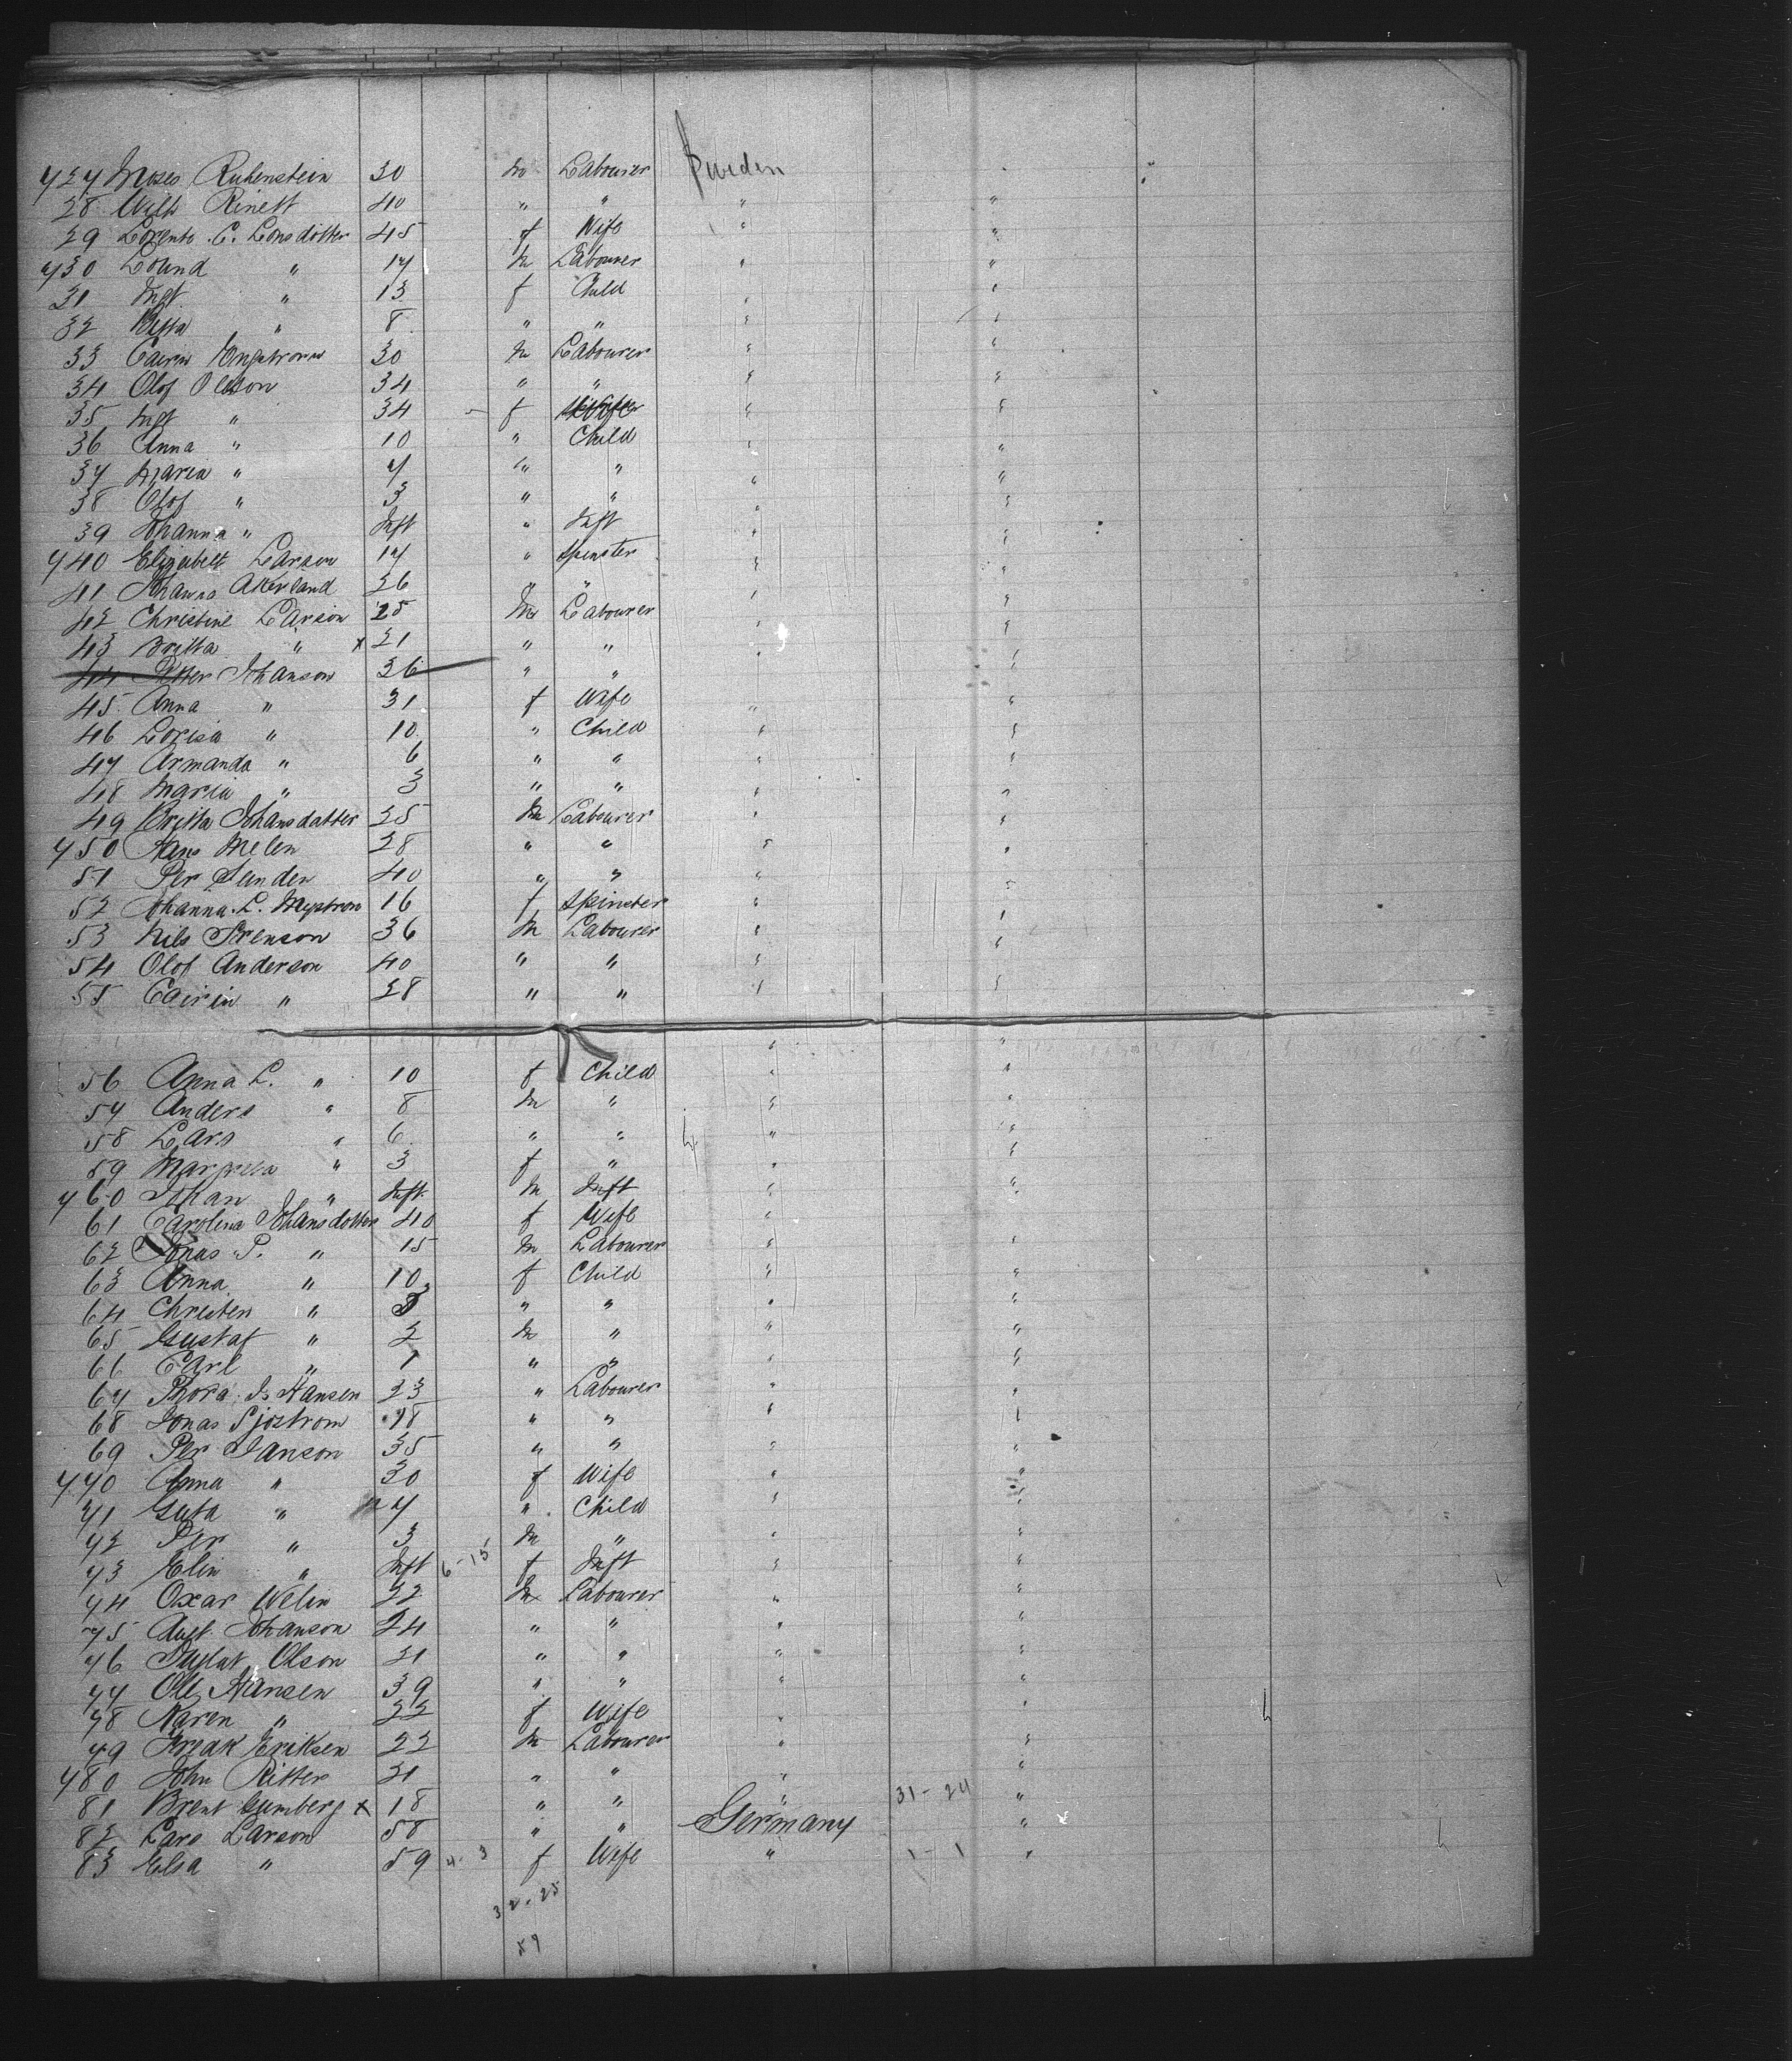 727 Moses Rubenstein 30 m Labourer Sweden
28 Wilh Rinell 40 " " " "
29 Lorents C. Lonsdotter 45 f Wife " "
730 Lound " 17 m Labourer " "
31 Ingt " 13 f Child " "
32 Britta " 8 " " " "
33 Cairin Engstrom 30 m Labourer " "
34 Olof Olsson 34 " " " "
35 Ingt " 34 f Wife " "
36 Anna " 10 " Child " "
37 Maria " 7 " " " "
38 Olof " 3 " " " "
39 Johanna " Inft " Inft " "
740 Elizabett Larson 17 " Spinster " "
41 Johanna Akerland 26 " " " "
42 Christine Larson 25 m Labourer " "
43 Britta " x 21 " " " "
44 Petter Johanson 36 " " " "
45 Anna " 31 f Wife " "
46 Lovisa " 10 " Child " "
47 Armanda " 6 " " " "
48 Maria " 3 " " " "
49 Britta Johansdatter 25 m Labourer " "
750 Hans Melen 28 " " " "
51 Per Sunden 40 " " " "
52 Johanna L. Mystrom 16 f Spinster " "
53 Nils Svenson 36 m Labourer " "
54 Olof Anderson 40 " " " "
55 Cairin " 28 " " " "
56 Anna L. " 10 f Child " "
57 Anders " 8 m " " "
58 Lars " 6 " " " "
59 Margreta " 3 f " " "
760 Johan " Inft m Inft " "
61 Carolina Johansdotter 40 f Wife " "
62 Jonas P. " 15 m Labourer " "
63 Anna " 10 f Child " "
64 Christen " 8 " " " "
65 Gustaf " 2 m " " "
66 Carl " 1 " " " "
67 Thora Is Hansen 23 " Labourer " "
68 Jonas Sjostrom 18 " " " "
69 Per Janson 35 " " " "
770 Anna " 30 f Wife " "
71 Guta " 7 " Child " "
72 Per " 3 m " " "
73 Elin " Inft 6-15 f Inft " "
74 Oscar Welin 22 m Labourer " "
75 Aust. Johanson 24 " " " "
76 Olson 21 " " " "
77 Ole Hansen 39 " " " "
78 Karen " 22 f Wife " "
79 Fredk Eriksen 22 m Labourer " "
780 John Ritter 21 " " " "
81 Brent Gumberg x 18 " " " 31-24 "
82 Lars Larson 58 " " Germany "
83 Elsa " 59 4-3 f Wife " 1-1 "
32-25
57